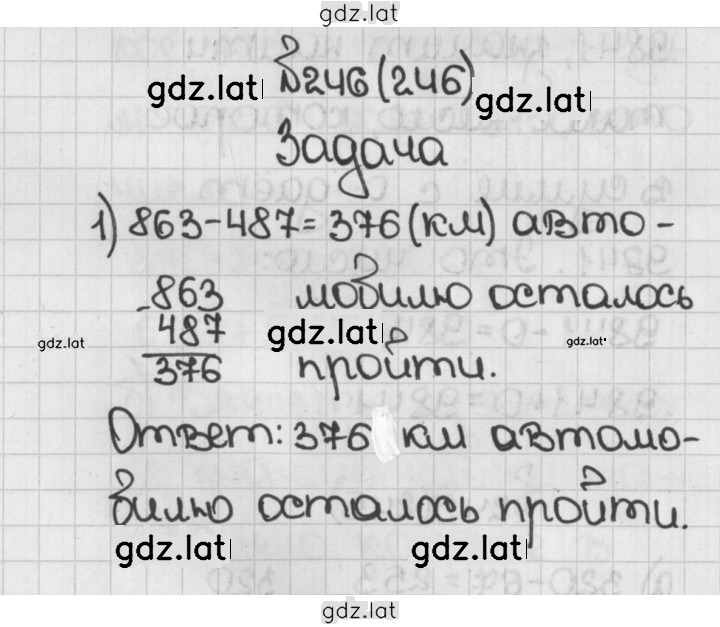 gdz.lat
№246 (246)
gdz.lat
gdz.lat
Задача
1) 863-487=376 (км) авто-
863
мобилю осталось
- 487
gdz.lat
gdz.lat
gdz.lat
376
пройти.
Ответ: 376 км автомо-
билю осталось пройти.
gdz.lat
gdz.lat
gdz.lat